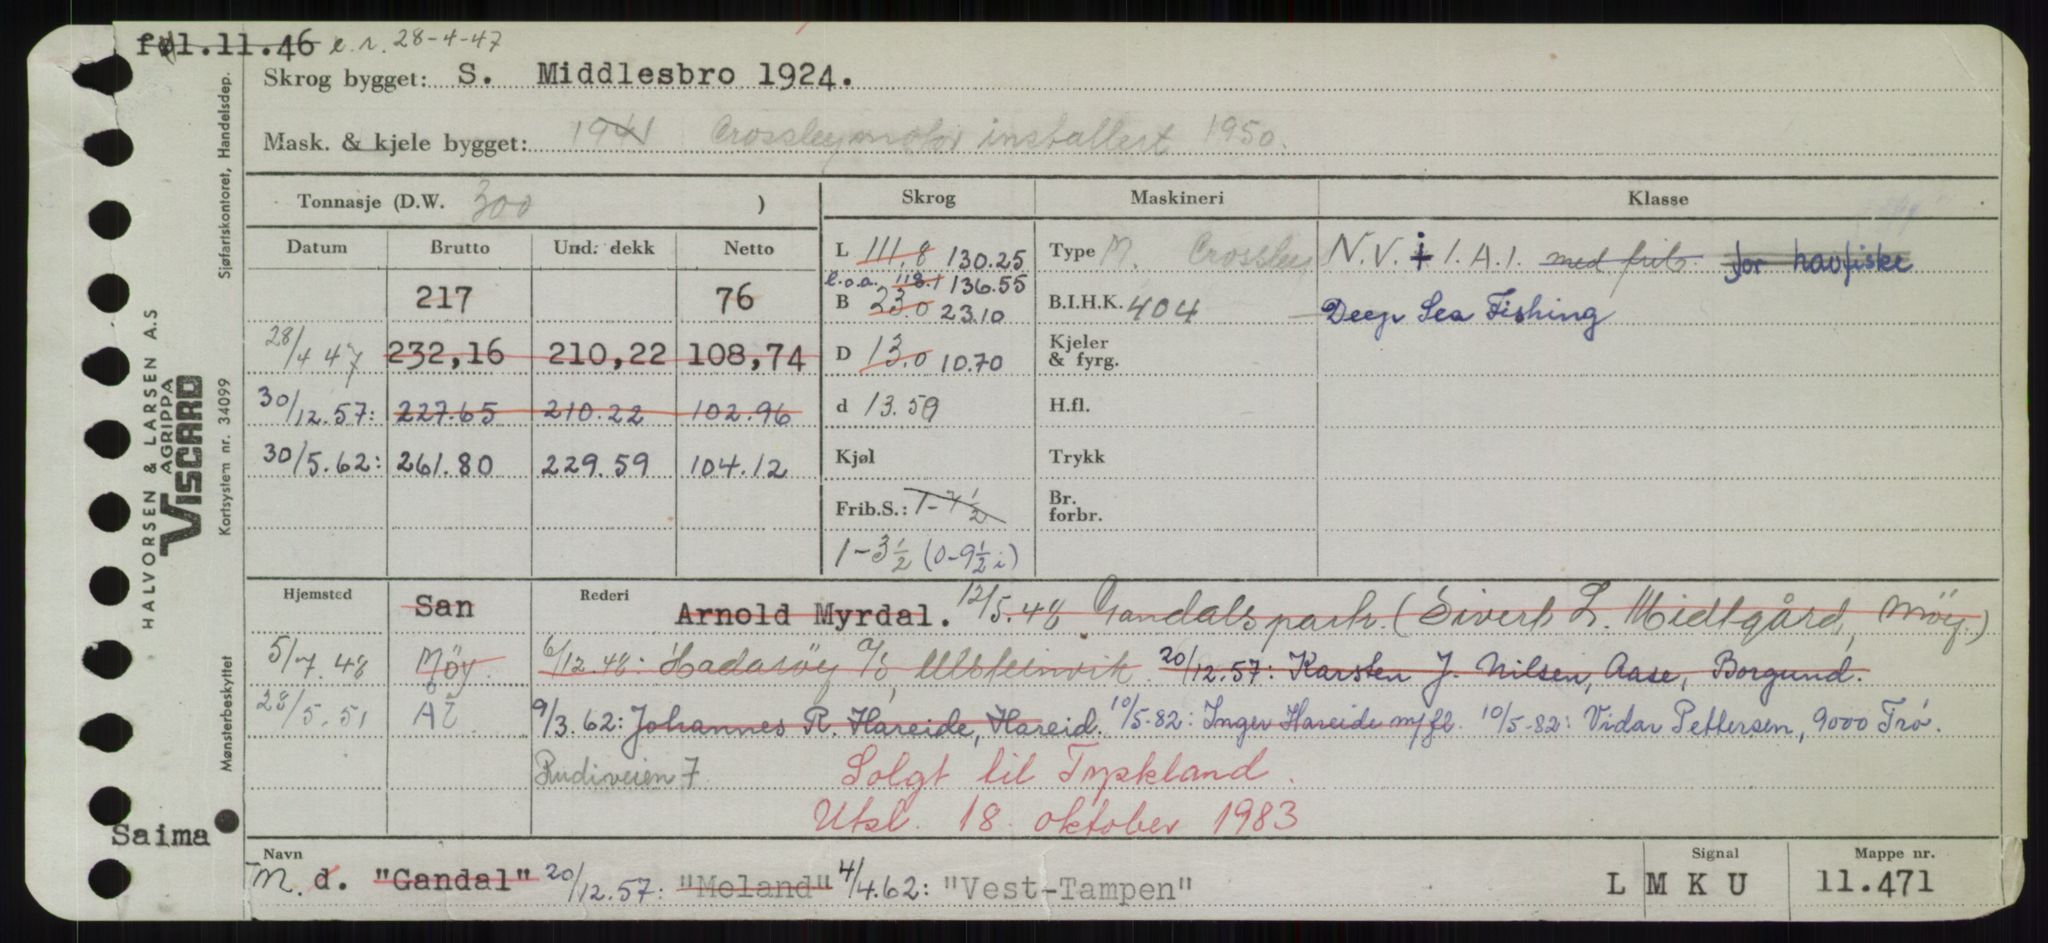 føl.11.46 e.r. 28-4-47
Skrog bygget: S. Middlesbro 1924.
Mask. & kjele bygget: 1941 Crossleymotor installert 1950.
Tonnasje (D.W. 300 )
Skrog Maskineri Klasse
Datum Brutto Und. dekk Netto
217 76
28/4 47 232,16 210,22 108,74
30/12.57: 227.65 210.22 102.96
30/5.62: 261.80 229.59 104.12
L 111,8 130.25
l.o.a. 118.1 136.55
B 23.0 23.10
D 13.0 10.70
d 13.50
Kjøl
Frib.S.: 1-7½
1-3½ (0-9½ i)
Type M. Crossley
B.I.H.K. 404
Kjeler & fyrg.
H.fl.
Trykk
Br. forbr.
N.V. i 1.A.1. med frib. for havfiske
Deep Sea Fishing
Hjemsted San Rederi Arnold Myrdal. 12/5.48 Gandals part. (Sivert L. Midtgård, Møy.)
5/7.48 Möy. 6/12.48: Hadarøy A/S, Ulsteinvik. 20/12.57: Karsten J. Nilsen, Aase, Borgund.
28/5.51 Ål 9/3.62: Johannes R. Hareide, Hareid. 10/5-82: Inger Hareide m/fl. 10/5-82: Vidar Pettersen, 9000 Trø.
Rudiveien 7 Solgt til Tyskland.
Utsl. 18. oktober 1983
Saima
Navn M. d. "Gandal" 20/12.57: "Meland" 4/4.62: "Vest-Tampen"
Signal L M K U
Mappe nr. 11.471
HALVORSEN & LARSEN A.S
AGRIPPA
VISCARD
Mønsterbeskyttet Kortsystem nr. 34099 Sjøfartskontoret, Handelsdep.